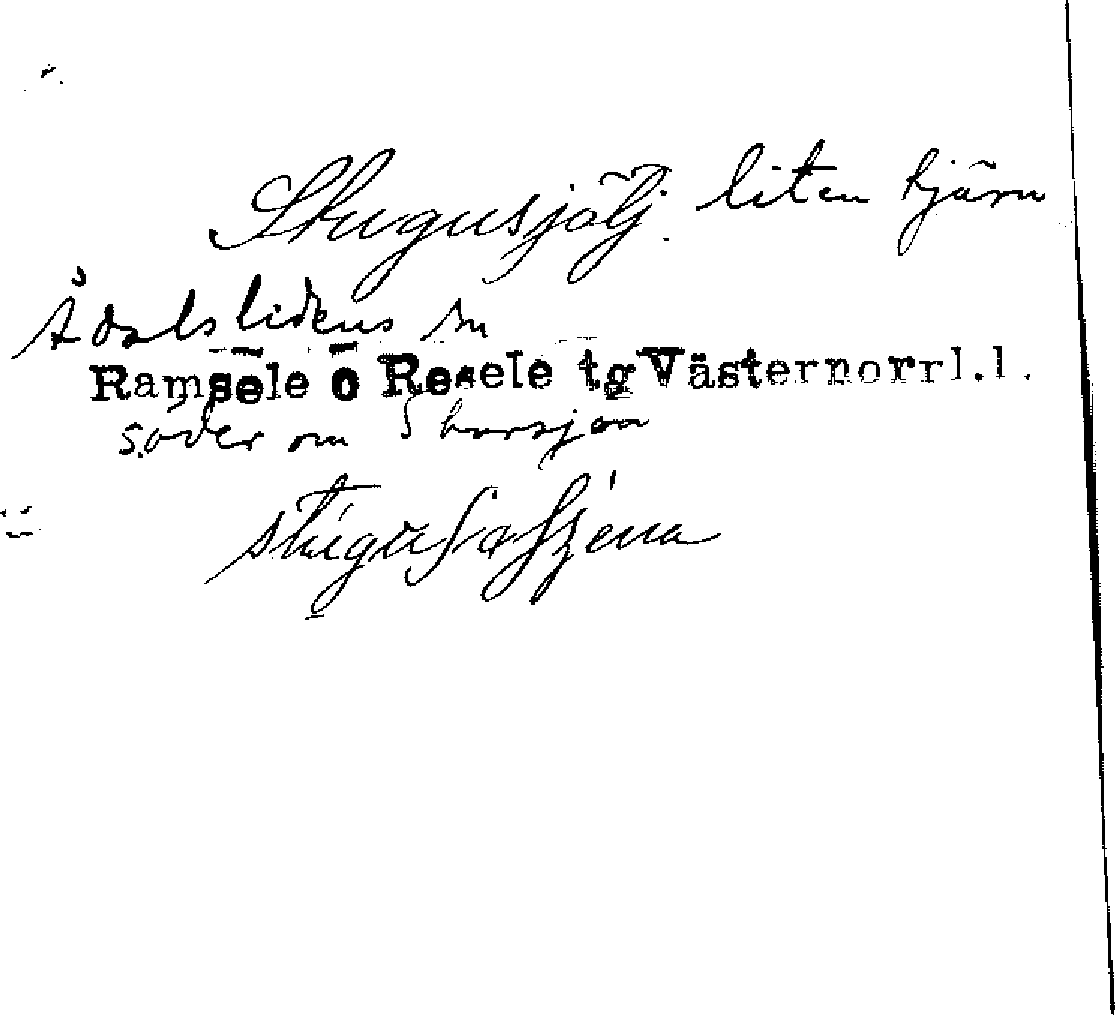 Stugusjötj. liten tjärn
Ådalslidens sn
Ramsele o Resele tg Västernorrl.l.
söder om Storsjön